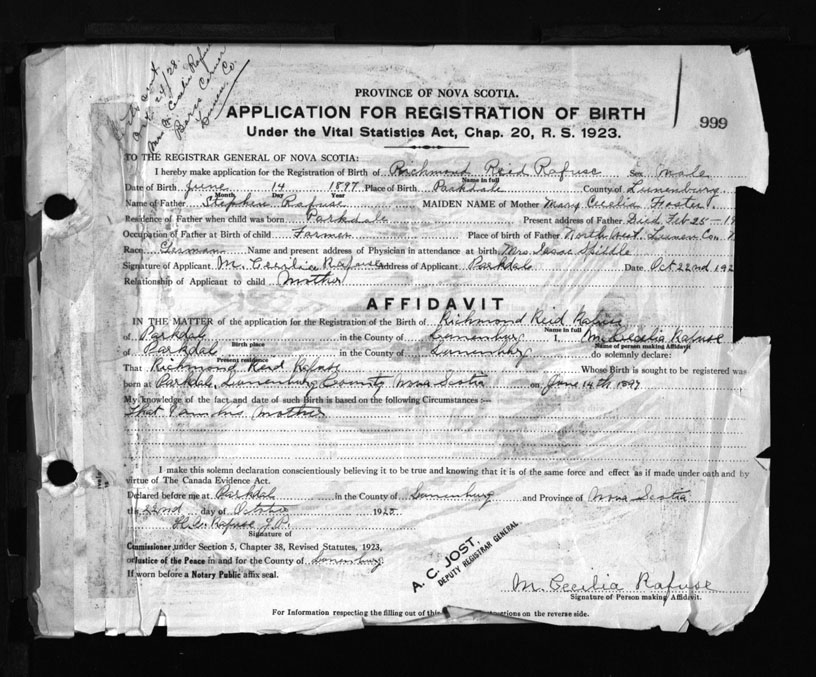 Oct 24/28
Mrs. Cecilia Rafuse
Barss Corner
Lunen. Co.
PROVINCE OF NOVA SCOTIA.
APPLICATION FOR REGISTRATION OF BIRTH
Under the Vital Statistics Act, Chap. 20, R. S. 1923.
999
TO THE REGISTRAR GENERAL OF NOVA SCOTIA:
I hereby make application for the Registration of Birth of Richmond Reid Rafuse Sex Male
Name in full
Date of Birth June 14 1897 Place of Birth Parkdale County of Lunenburg
Month Day Year
Name of Father Stephen Rafuse MAIDEN NAME of Mother Mary Cecelia Foster
Residence of Father when child was born Parkdale Present address of Father Died Feb 25 - 19
Occupation of Father at Birth of child Farmer Place of birth of Father North West Lunen Con N
Race German Name and present address of Physician in attendance at birth Mrs Isaac Spiddle
Signature of Applicant M. Cecilia Rafuse Address of Applicant Parkdale Date Oct 22nd 192
Relationship of Applicant to child Mother
AFFIDAVIT
IN THE MATTER of the application for the Registration of the Birth of Richmond Reid Rafuse
Name in full
of Parkdal in the County of Lunenburg I, M. Cecelia Rafuse
Birth place Name of person making Affidavit
of Parkdal in the County of Lunenburg do solemnly declare:
Present residence
That Richmond Reid Rafuse Whose Birth is sought to be registered was
born at Parkdal, Lunenburg County Nova Scotia on June 14th 1897
My knowledge of the fact and date of such Birth is based on the following Circumstances :—
That I am his Mother
I make this solemn declaration conscientiously believing it to be true and knowing that it is of the same force and effect as if made under oath and by
virtue of The Canada Evidence Act.
Declared before me at Parkdal in the County of Lunenburg and Province of Nova Scotia
the 22nd day of October 192
Rafuse J.P.
Signature of
Commissioner under Section 5, Chapter 38, Revised Statutes, 1923,
or Justice of the Peace in and for the County of Lunenburg
If sworn before a Notary Public affix seal.
A. C. JOST,
DEPUTY REGISTRAR GENERAL
M. Cecilia Rafuse
Signature of Person making Affidavit.
For Information respecting the filling out of this instructions on the reverse side.